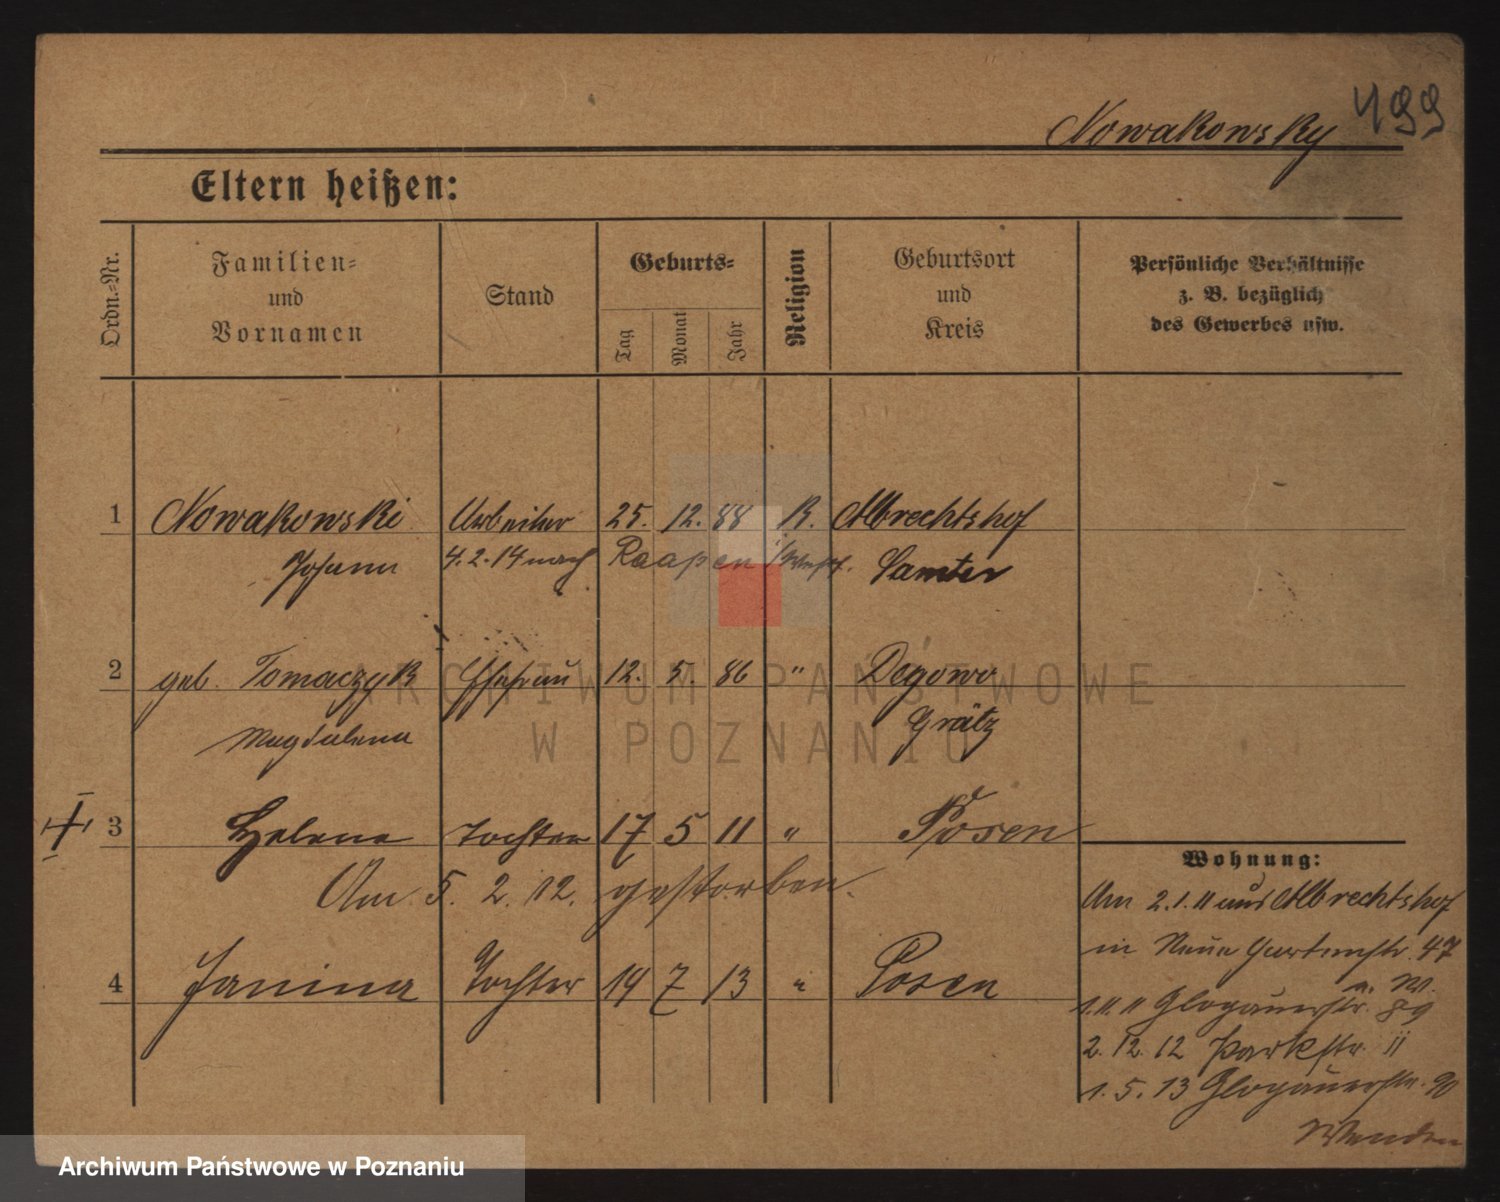 Nowakowsky 499
Eltern heißen:
Ordn.-Nr.
Familien- und Vornamen
Stand
Geburts-
Tag
Monat
Jahr
Religion
Geburtsort und Kreis
Persönliche Verhältnisse z. B. bezüglich des Gewerbes usw.
1 Nowakowski Arbeiter 25. 12. 88 K. Albrechtshof
Johann 4.2.14 nach Samter
2 geb. Tomaczyk Ehefrau 12. 5. 86 " Degowo
Magdalena Grätz
3 Helene Tochter 17 5 11 " Posen
Am 5. 2. 12. gestorben.
4 Janina Tochter 19 7 13 " Posen
Wohnung:
Am 2.1.11 aus Albrechtshof
in Neue Gartenstr. 47
a. W.
1.11.11 Glogauerstr. 89
2.12.12 Parkstr. 11
1.5.13 Glogauerstr. 90
Wenden
ARCHIWUM PAŃSTWOWE
W POZNANIU
Archiwum Państwowe w Poznaniu